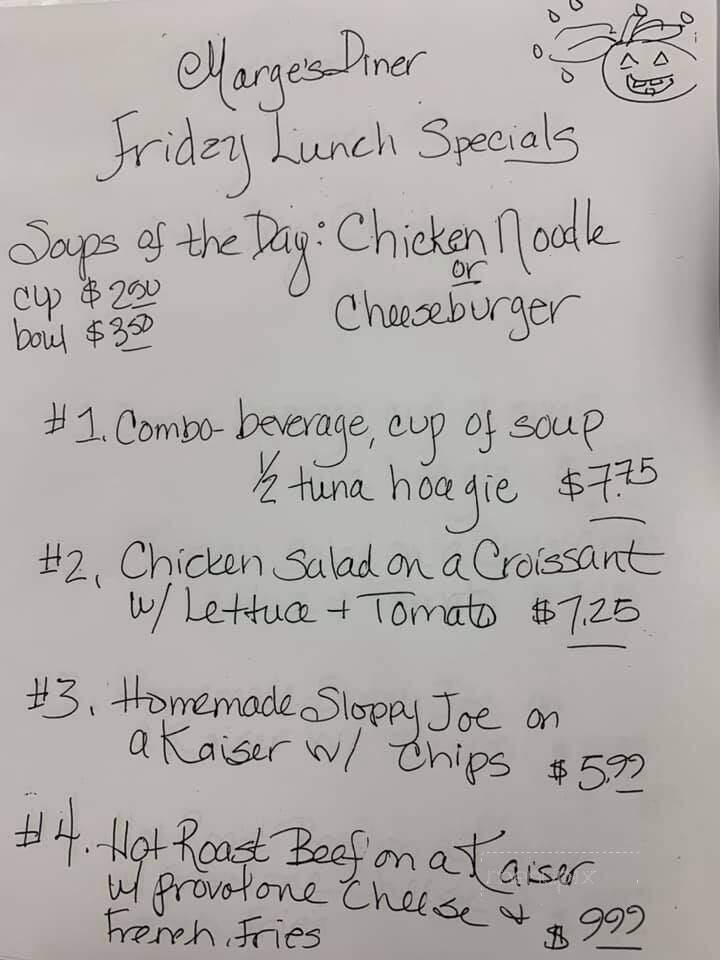 Marge's Diner
Friday Lunch Specials
Soups of the Day: Chicken Noodle
or
cup $2.50
Cheeseburger
bowl $3.50
#1. Combo- beverage, cup of soup
1/2 tuna hoagie $7.75
#2. Chicken Salad on a Croissant
w/ Lettuce + Tomato $7.25
#3. Homemade Sloppy Joe on
a Kaiser w/ Chips $5.99
#4. Hot Roast Beef on a Kaiser
w/ provolone Cheese &
French Fries $9.99